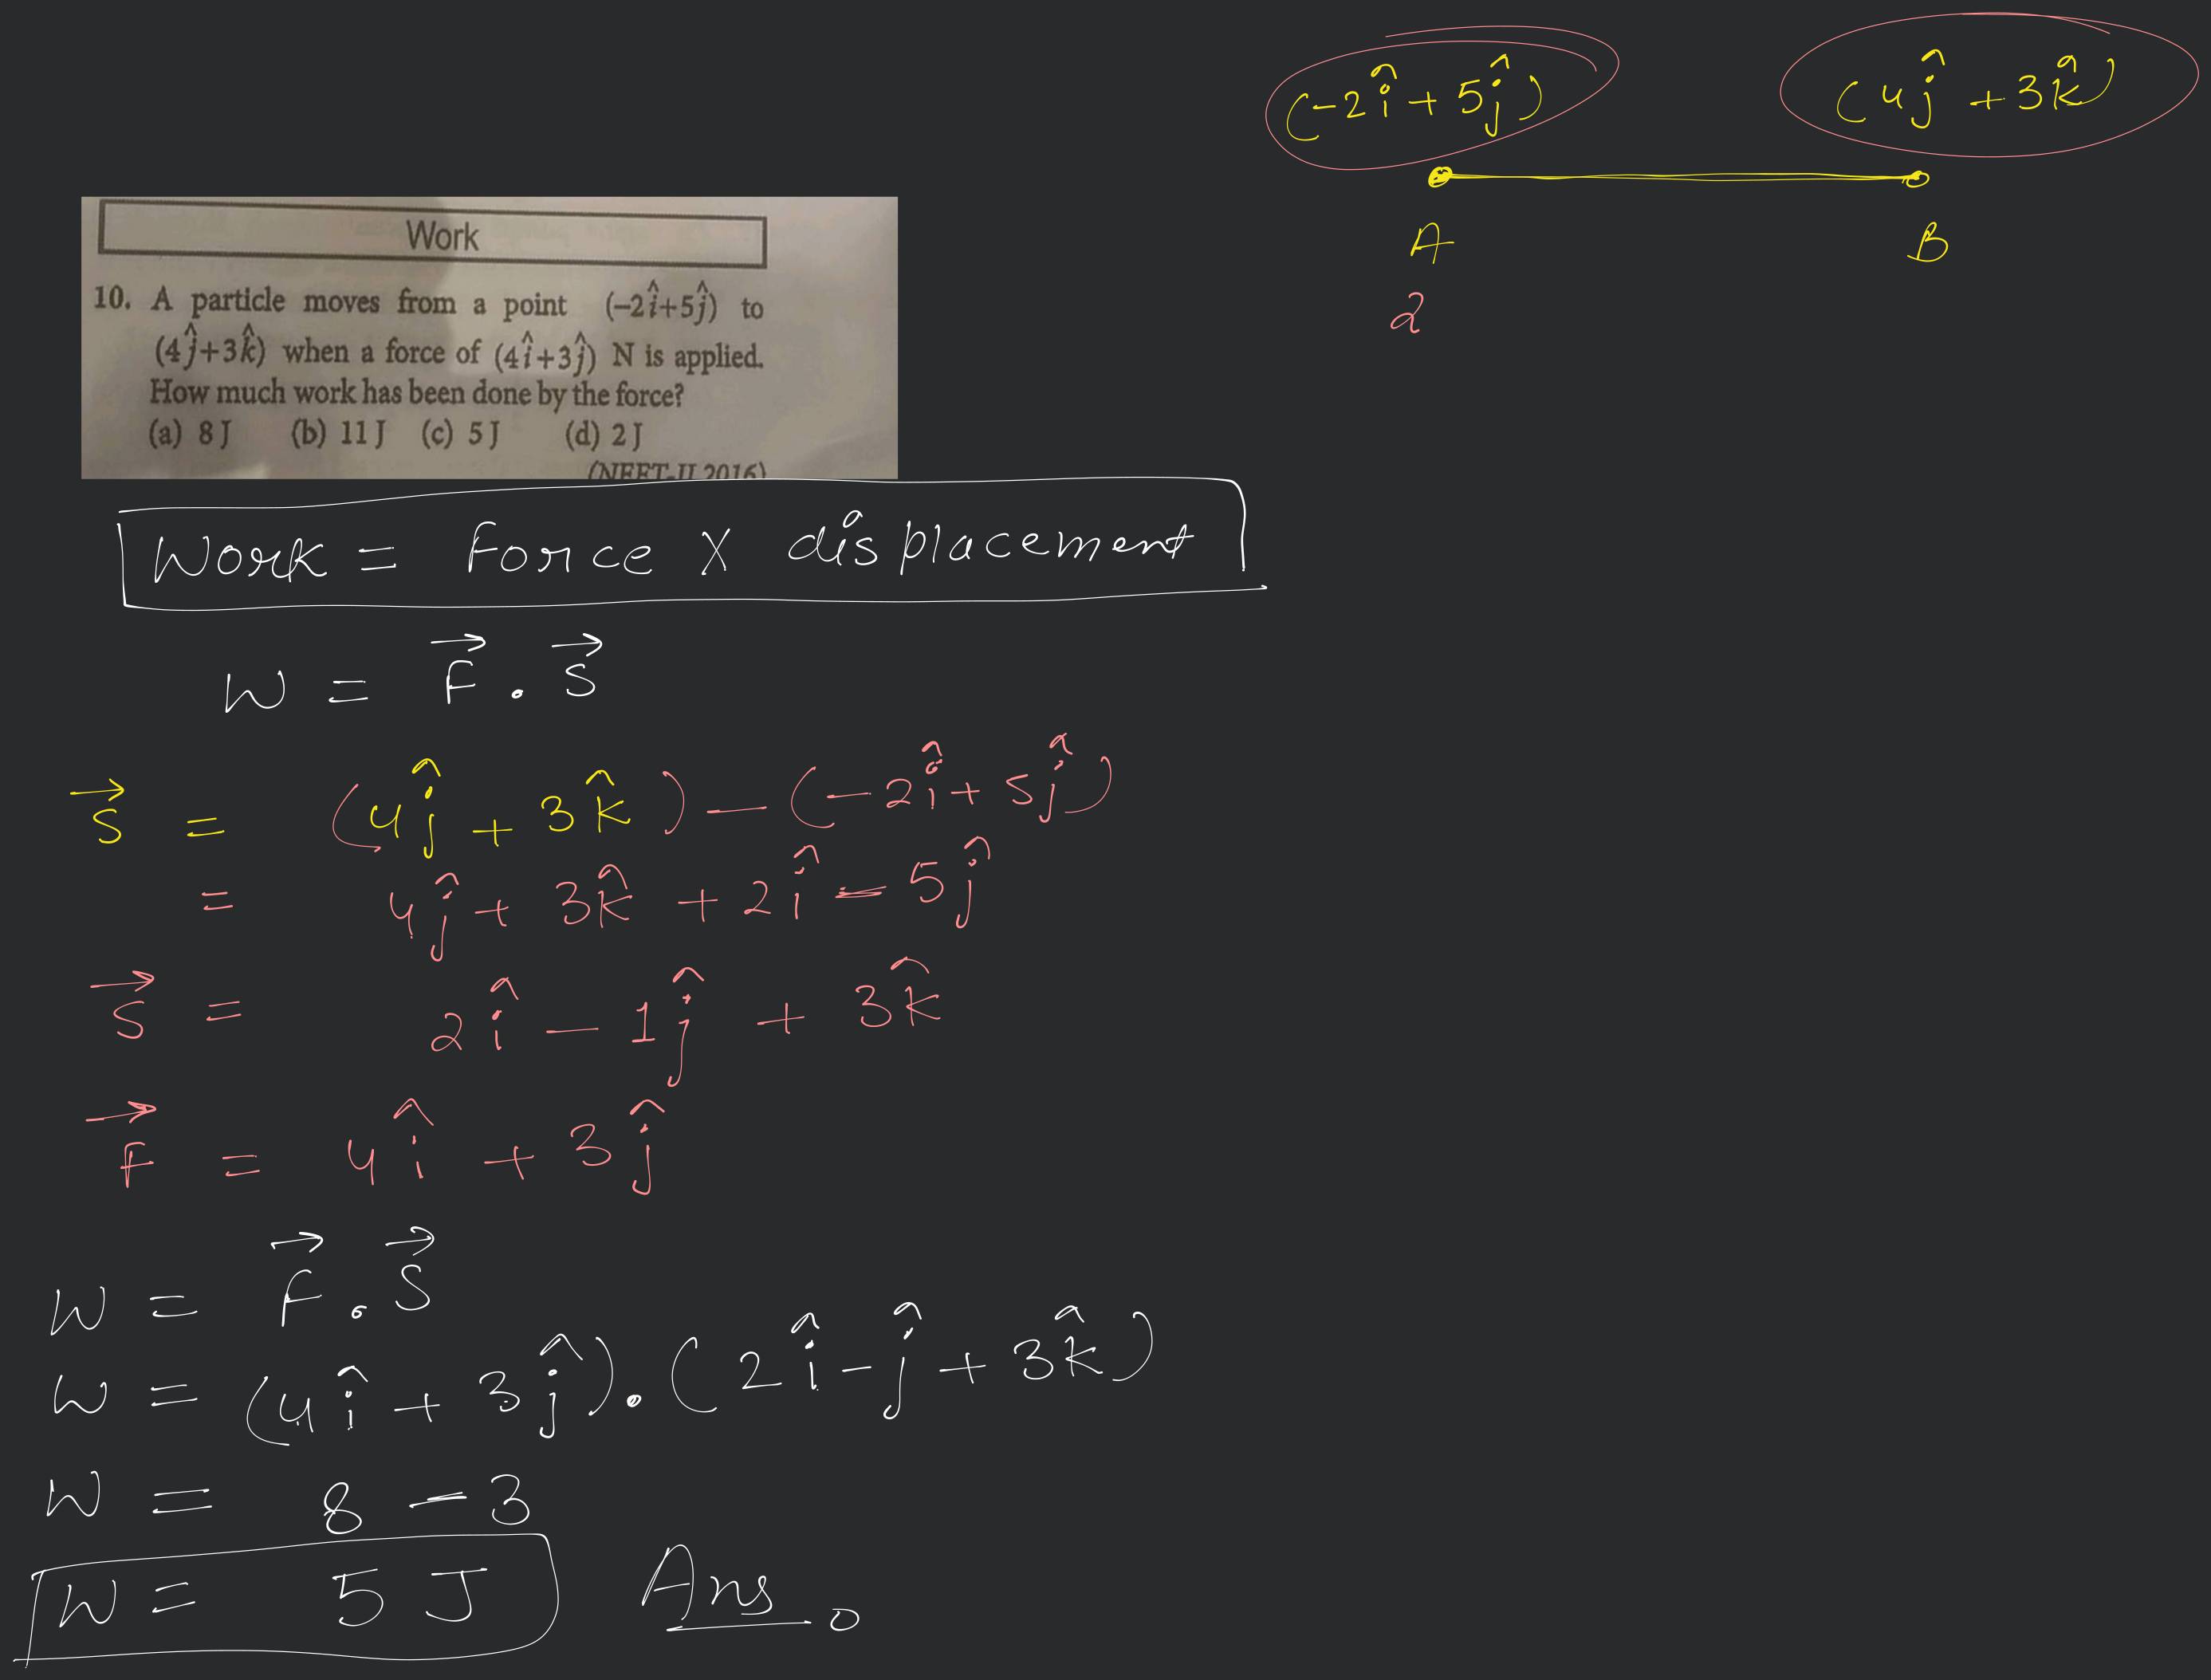 (-2î + 5ĵ)
(4ĵ + 3k̂)
A
B
2
Work
10. A particle moves from a point (–2î+5ĵ) to
(4ĵ+3k̂) when a force of (4î+3ĵ) N is applied.
How much work has been done by the force?
(a) 8 J (b) 11 J (c) 5 J (d) 2 J
(NEET-II 2016)
Work = Force X displacement
W = F⃗ . S⃗
S⃗ = (4ĵ + 3k̂) - (-2î + 5ĵ)
= 4ĵ + 3k̂ + 2î - 5ĵ
S⃗ = 2î - 1ĵ + 3k̂
F⃗ = 4î + 3ĵ
W = F⃗ . S⃗
W = (4î + 3ĵ) . (2î - ĵ + 3k̂)
W = 8 - 3
W = 5 J Ans.